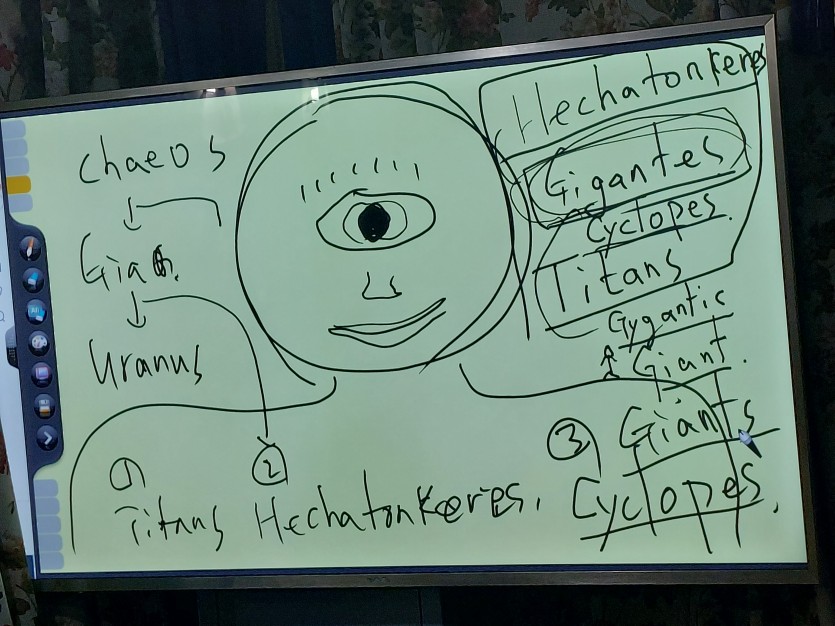 Chaeos
Giaa.
Uranus
Hechatonkeres
Gigantes
Cyclopes.
Titans
Gygantic
Giant.
③ Giants
① Titans ② Hechatonkeres. Cyclopes.